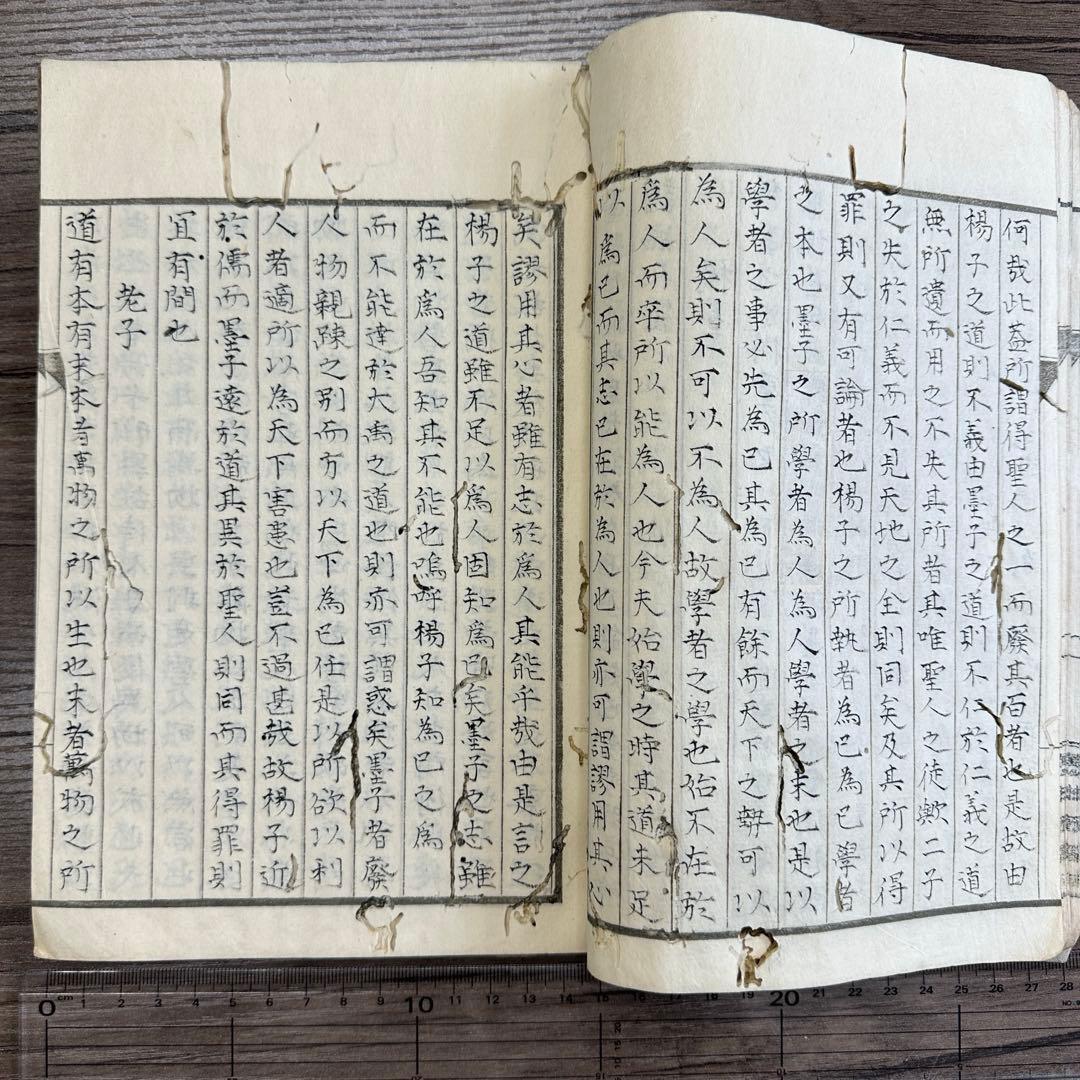 何哉此蓋所謂得聖人之一而廢其百者也是故由
楊子之道則不義由墨子之道則不仁於仁義之道
無所遺而用之不失其所者其唯聖人之徒歟二子
之失於仁義而不見天地之全則同矣及其所以得
罪則又有可論者也楊子之所執者為已為已學者
之本也墨子之所學者為人為人學者之末也是以
學者之事必先為已其為已有餘而天下之勢可以
為人矣則不可以不為人故學者之學也始不在於
爲人而卒所以能為人也今夫始學之時其道未足
以爲已而其志已在於為人也則亦可謂謬用其心
矣謬用其心者雖有志於爲人其能乎哉由是言之
楊子之道雖不足以爲人固知爲已矣墨子之志雖
在於爲人吾知其不能也嗚呼楊子知為已之為
而不能達於大禹之道也則亦可謂惑矣墨子者廢
人物親踈之別而方以天下為已任是以所欲以利
人者適所以為天下害患也豈不過甚哉故楊子近
於儒而墨子遠於道其異於聖人則同而其得罪則
宜有間也
老子
道有本有末本者萬物之所以生也末者萬物之所
0 cm 1 2 3 4 5 6 7 8 9 10 11 12 13 14 15 16 17 18 19 20 21 22 23 24 25 26 27 28